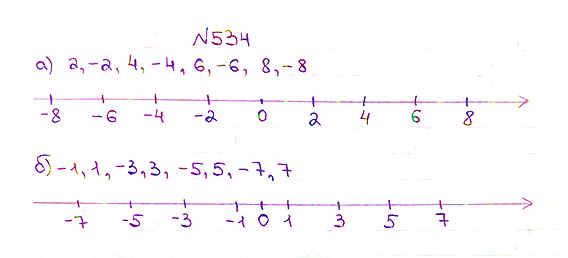 №534
а) 2, -2, 4, -4, 6, -6, 8, -8
-8 -6 -4 -2 0 2 4 6 8
б) -1, 1, -3, 3, -5, 5, -7, 7
-7 -5 -3 -1 0 1 3 5 7